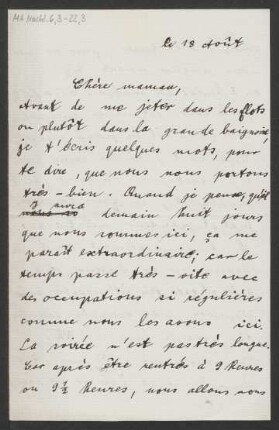 MA Nachl. 6,3-22,3
le 18 Août
Chère maman,
Avant de me jeter dans les flots
ou plutôt dans la grande baignoire,
je t'écris quelques mots, pour
te dire, que nous nous portons
très-bien. Quand je pense, qu'il
y aura
demain huit jours
que nous sommes ici, ça me
paraît extraordinaire; car le
temps passe très-vite avec
des occupations si régulières
comme nous les avons ici.
La soirée n'est pas très longue.
Car après être rentrés à 9 heures
ou 9½ heures, nous allons nous